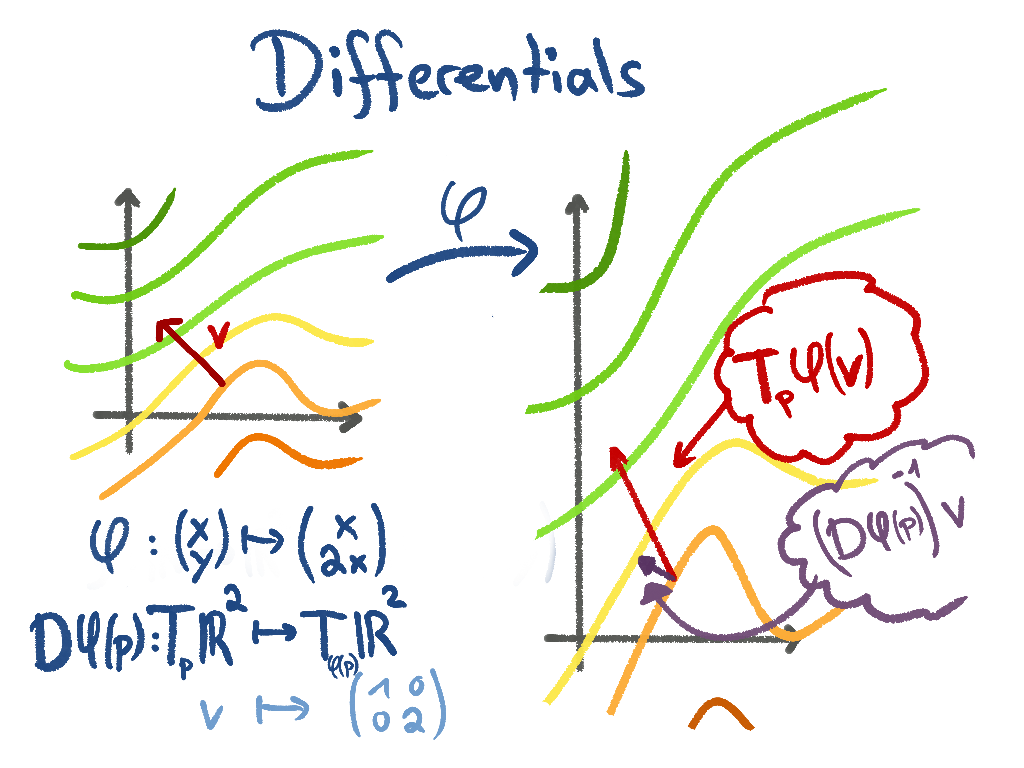 Differentials
φ
v
T_p φ(v)
(Dφ(p))⁻¹ v
φ : (x y) ↦ (x 2x)
Dφ(p) : T_p ℝ² ↦ T_φ(p) ℝ²
v ↦ (1 0 0 2)